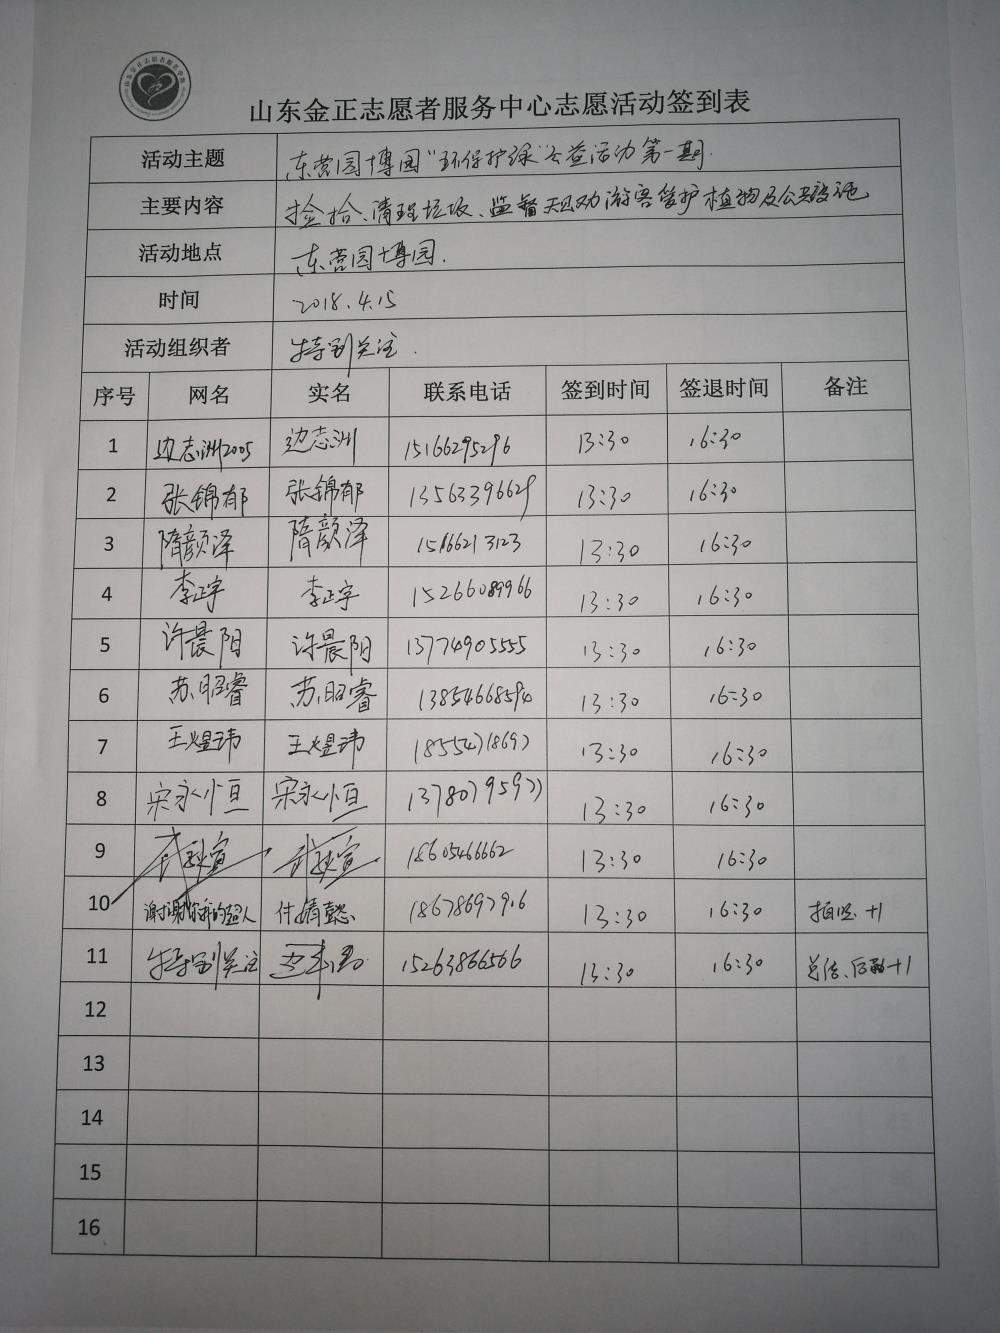 山东金正志愿者服务中心志愿活动签到表
活动主题 东营园博园"环保护绿"公益活动第一期.
主要内容 捡拾、清理垃圾、监督规劝游客爱护植物及公共设施
活动地点 东营园博园.
时间 2018.4.15
活动组织者 特别关注.
序号 网名 实名 联系电话 签到时间 签退时间 备注
1 边志洲2005 边志洲 15166295296 13:30 16:30
2 张锦郁 张锦郁 13563396629 13:30 16:30
3 隋颜泽 隋颜泽 15166213123 13:30 16:30
4 李正宇 李正宇 15266089966 13:30 16:30
5 许晨阳 许晨阳 13774905555 13:30 16:30
6 苏昭睿 苏昭睿 13854668594 13:30 16:30
7 王煜玮 王煜玮 18554718697 13:30 16:30
8 宋永恒 宋永恒 13780795977 13:30 16:30
9 18605466662 13:30 16:30
10 付婧懿 18678697916 13:30 16:30 拍照+1
11 特别关注 15263866566 13:30 16:30 总结、后勤+1
12
13
14
15
16